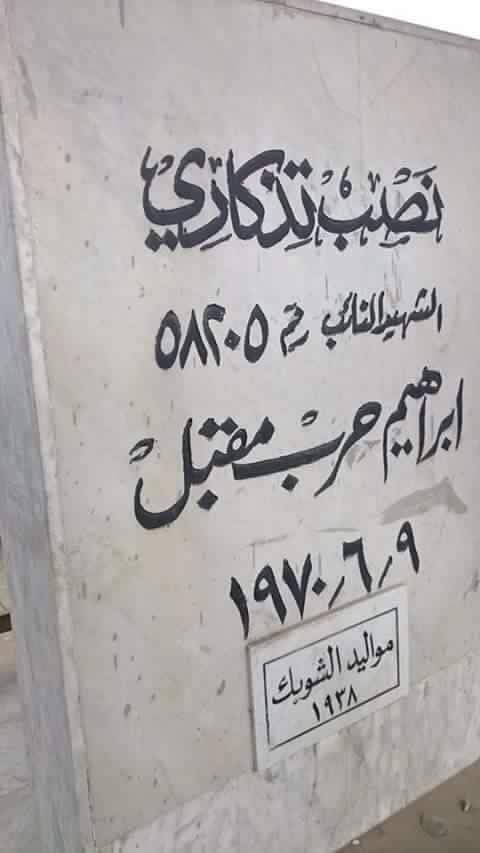 نَصْب تِذكاري
الشهيد النائب رقم ٥٨٢٠٥
ابراهيم حرب مقبل
٩ ٫ ٦ ٫ ١٩٧٠
مواليد الشوبك
١٩٣٨